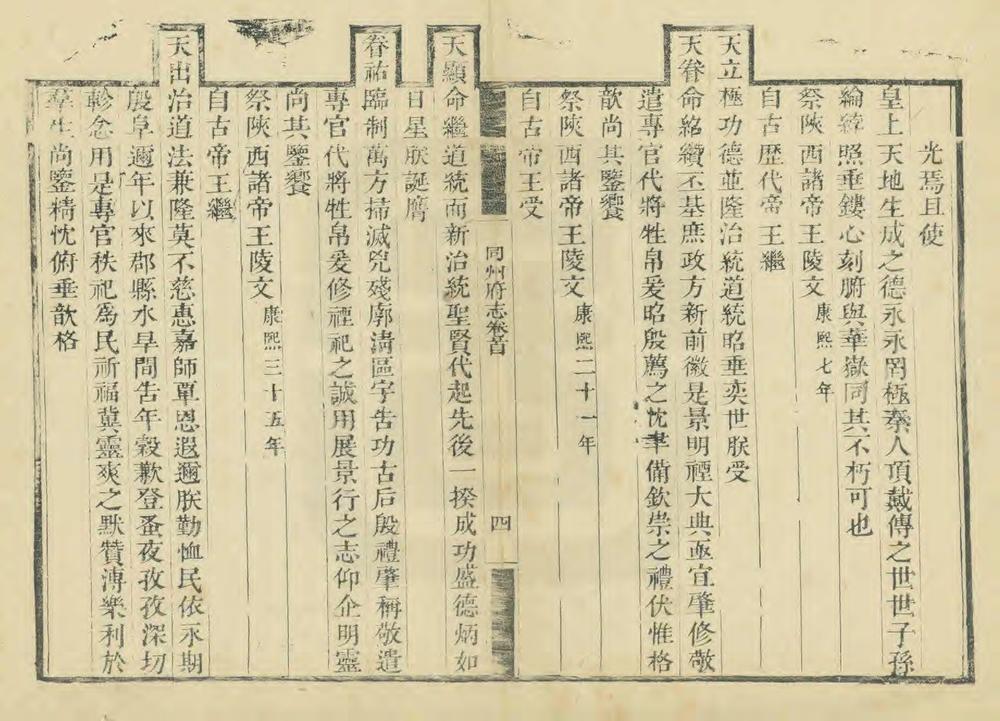 光焉且使
皇上天地生成之德永永罔極秦人頂戴傳之世世子孫
綸綍照垂鏤心刻腑與華嶽同其不朽可也
祭陝西諸帝王陵文康熙七年
自古歷代帝王繼
天立極功德並隆治統道統昭垂奕世朕受
天眷命紹纘丕基庶政方新前徽是景明禋大典亟宜肇修敬
遣專官代將牲帛爰昭殷薦之忱聿備欽崇之禮伏惟格
歆尚其鑒饗
祭陝西諸帝王陵文康熙二十一年
自古帝王受
同州府志卷首
四
天顯命繼道統而新治統聖賢代起先後一揆成功盛德炳如
日星朕誕膺
眷祐臨制萬方掃滅兇殘廓清區宇告功古后殷禮肇稱敬遣
專官代將牲帛爰修禋祀之誠用展景行之志仰企明靈
尚其鑒饗
祭陝西諸帝王陵文康熙三十五年
自古帝王繼
天出治道法兼隆莫不慈惠嘉師覃恩遐邇朕勤恤民依永期
殷阜邇年以來郡縣水旱間告年穀歉登蚤夜孜孜深切
軫念用是專官秩祀爲民祈福冀靈爽之默贊溥樂利於
羣生尚鑒精忱俯垂歆格